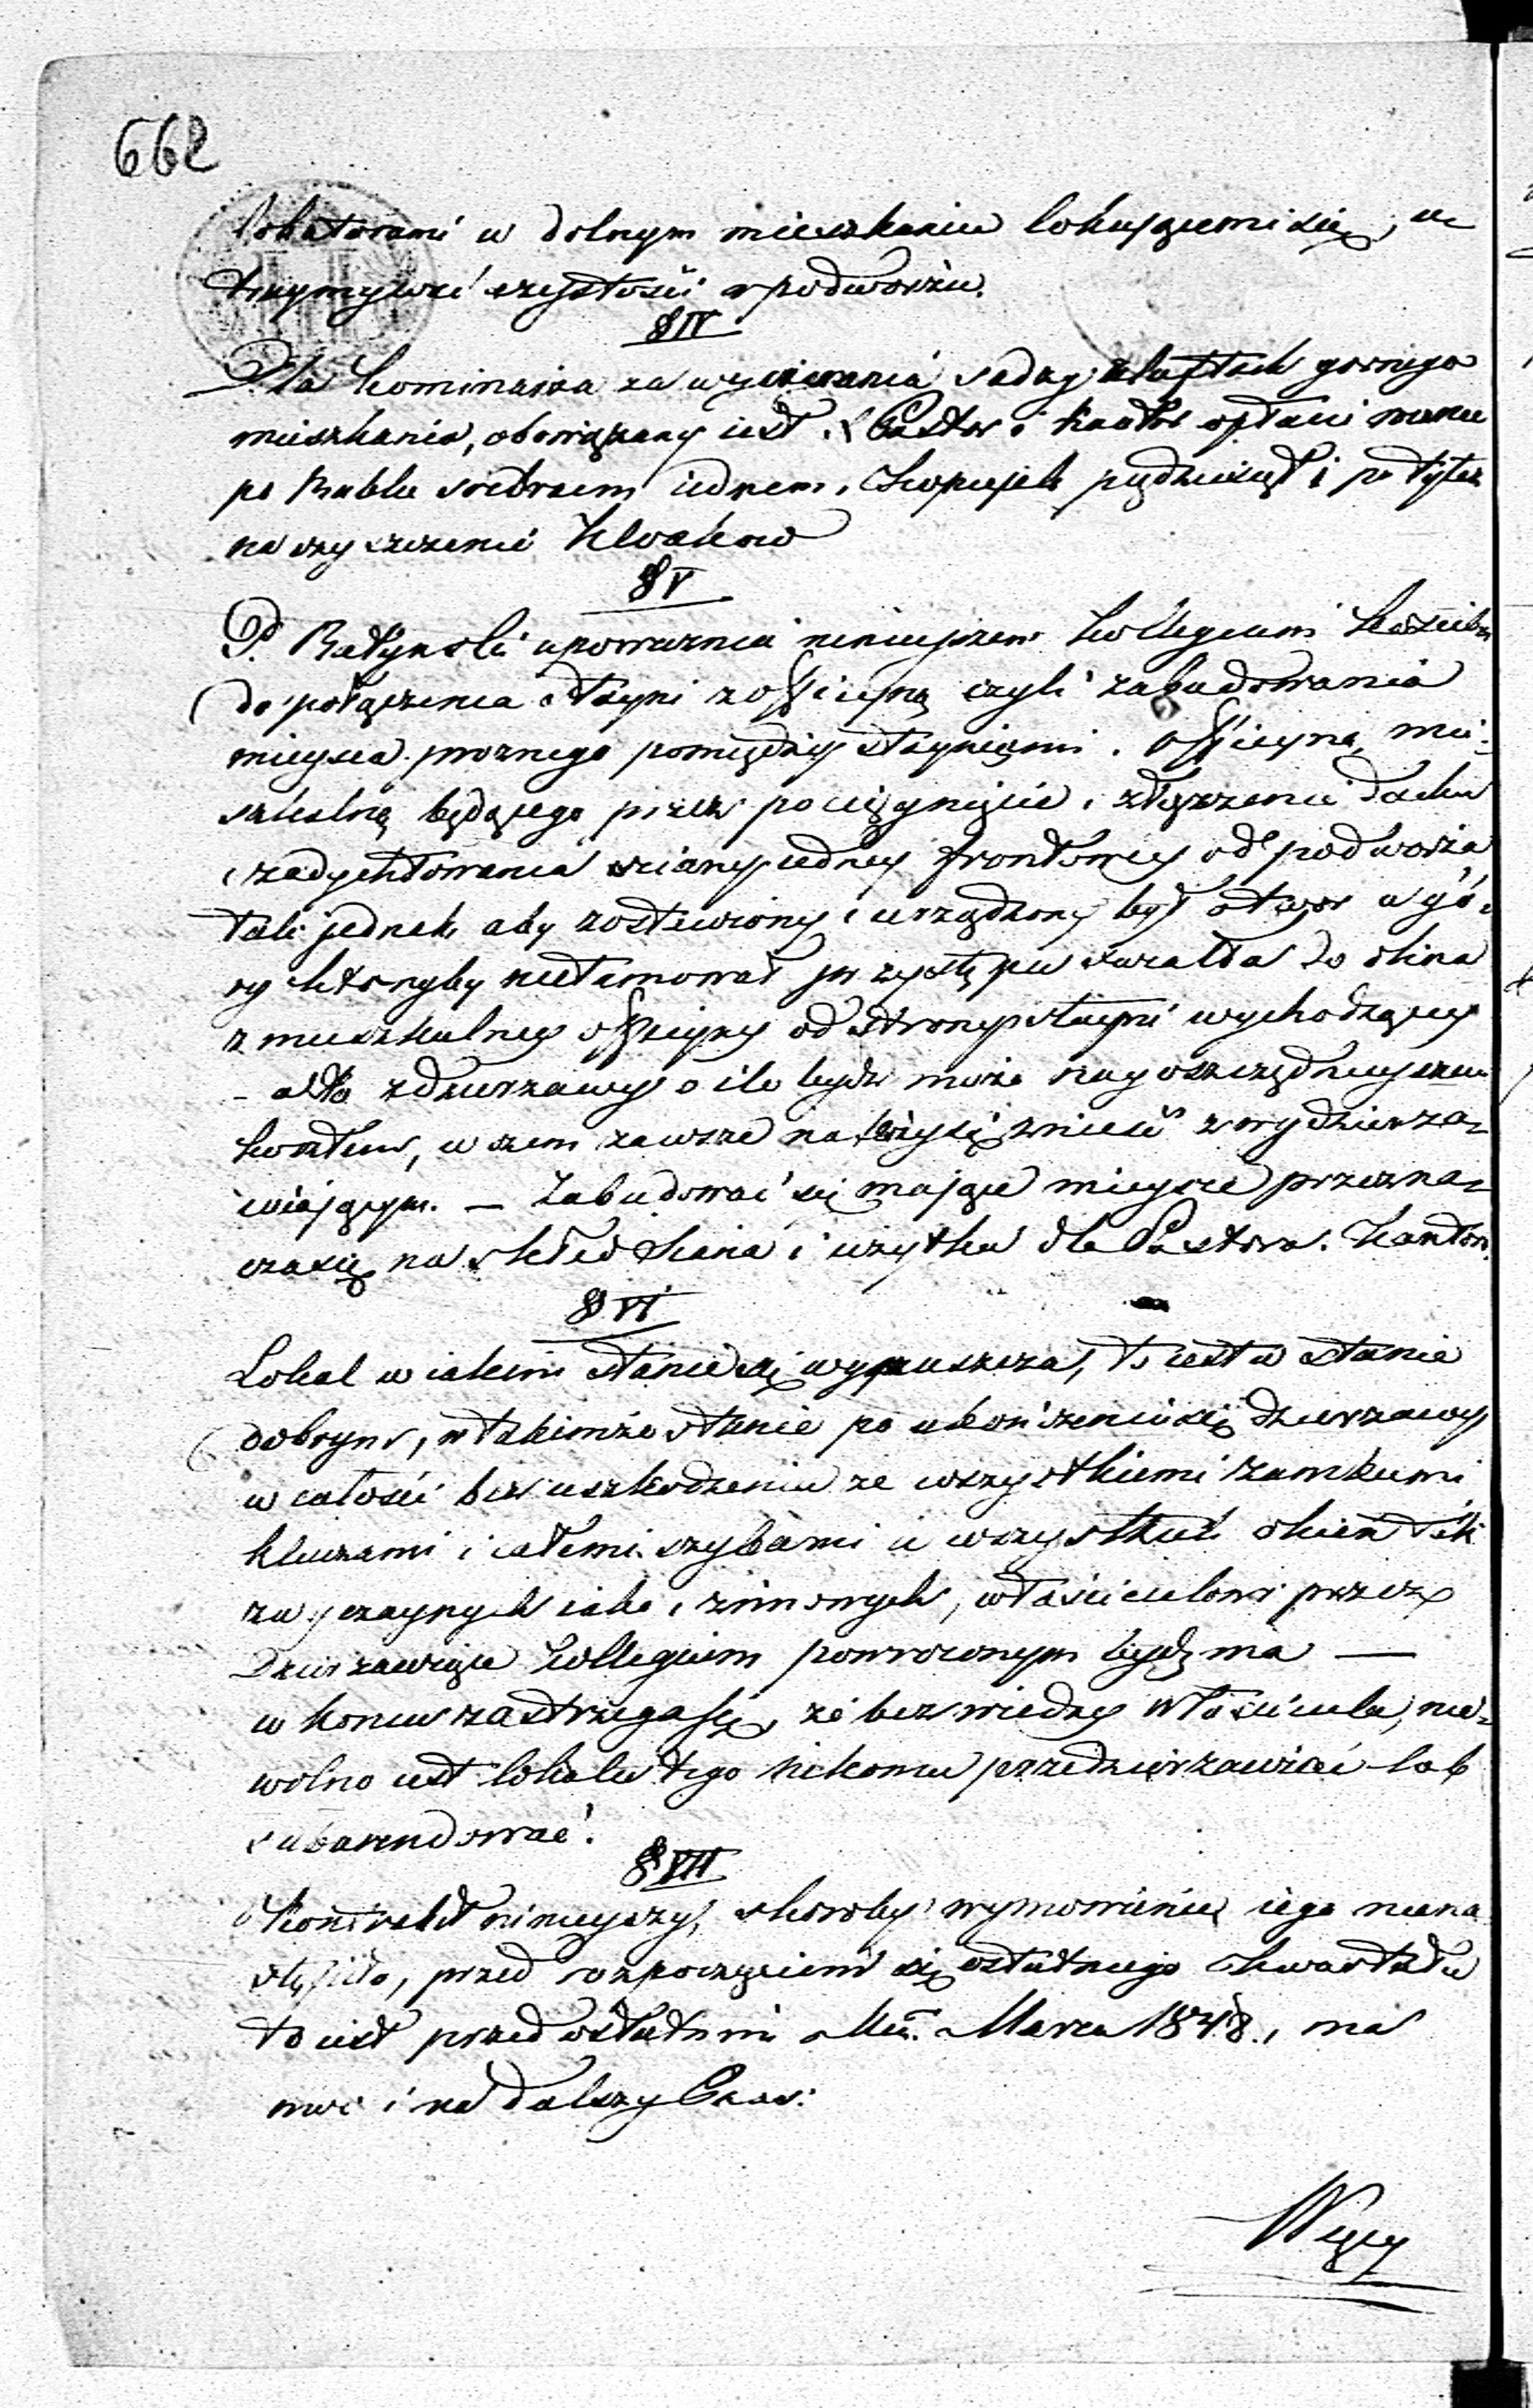 662
lokatorami w dolnym mieszkaniu lokującemi się, u-
trzymywać czystości w podworzu.
§ IV.
Dla Kominiarza za wycieranie sadzy w luftach gornego
mieszkania, obowiązany iest Pastor i Kantor opłacić
po Rublu srebrem iednem, kopiejek pięździesiąt i po tyleż
na wyczyszczenie Kloakow
§ V
P. Ratyński upoważnia niniejszem Kollegium Kościelne
do połączenia stayni z officyną czyli zabudowania
mieysca proznego pomiędzy stayniami i officyną mie-
szkalną będącego przez pociągnięcie i złączenie dachu
i zadychtowania sciany iedney frontowey od podworza
tak jednak aby zostawiony i urządzony był otwor w gó-
ry ktoryby nietamował przystępu swiatła do okna
z mieszkalney officyny od strony stayni wychodzącey
- a to z dzierzawy o ile bydź może nayoszczędnieyszem
kosztem, w czem zawsze należy się znieść z wydzierza-
wiającym. — Zabudować się mające mieysce przezna-
cza się na skład siana i użytku dla Pastora i Kantora.
§ VI
Lokal w iakim stanie się wypuszcza, to iest w stanie
dobrym, w takimże stanie po ukończeniu się dzierzawy
w całości bez uszkodzenia ze wszystkiemi zamkami
kluczami i całemi szybami u wszystkich okien tak
zwyczaynych iako i zimowych, właścicielowi przez
Dzierzawiące Kollegium powroconym bydź ma —
w koncu zastrzega się, że bez wiedzy Właściciela, nie-
wolno iest lokalu tego nikomu przedzierzawiać lub
subarendować.
§ VII
Kontrakt ninieyszy, skoroby wymowienie iego niena
stąpiło, przed rozpoczęciem się ostatniego kwartału
to iest przed ostatnim Marca 1848., ma
moc i na dalszy Czas.
Więcy